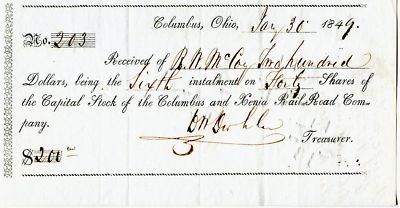 Columbus, Ohio, Jany 30 1849.
No. 203
Received of R. W. McCoy Two hundred
Dollars, being the Sixth instalment on Forty Shares
of the Capital Stock of the Columbus and Xenia Rail Road Com-
pany.
Treasurer.
$200